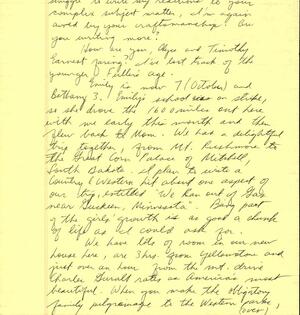 struggle to write my reactions to your
complex subject matter, I'm again
awed by your craftsmanship. Are
you writing more?
How are you, Alyce and Timothy
Earnest faring? I've lost track of the
younger Fallis's age.
Emily is now 7 (October) and
Bethany 3. Emily's school was on strike,
so she drove the 1800 miles out here
with me early this month and then
flew back to Mom. We had a delightful
trip together, from Mt. Rushmore to
the Great Corn Palace of Mitchell,
South Dakota. I plan to write a
Country & Western hit about one aspect of
our trip, entitled "I Ran out of Gas
near , Minnesota". Being part
of the girls' growth is as good a chunk
of life as I could ask for.
We have lots of room in our new
house here, are 3 hrs. from Yellowstone and
just over an hour from the mt. drive
Charles Kuralt rates as America's most
beautiful. When you make the obligatory
family pilgrimage to the Western parks,
(over)